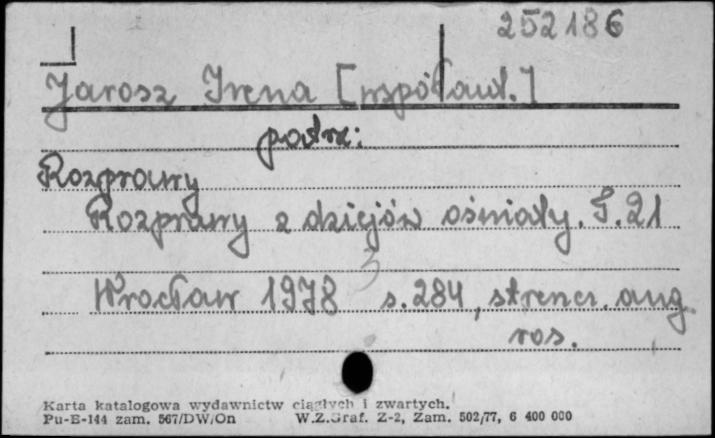 252186
Jarosz Irena [współaut.]
patrz:
Rozprawy
Rozprawy z dziejów oświaty. T. 21
Wrocław 1978 s. 284, streszcz. ang.
ros.
Karta katalogowa wydawnictw ciągłych i zwartych.
Pu-E-144 zam. 567/DW/On W.Z.Graf. Z-2, Zam. 502/77, 6 400 000